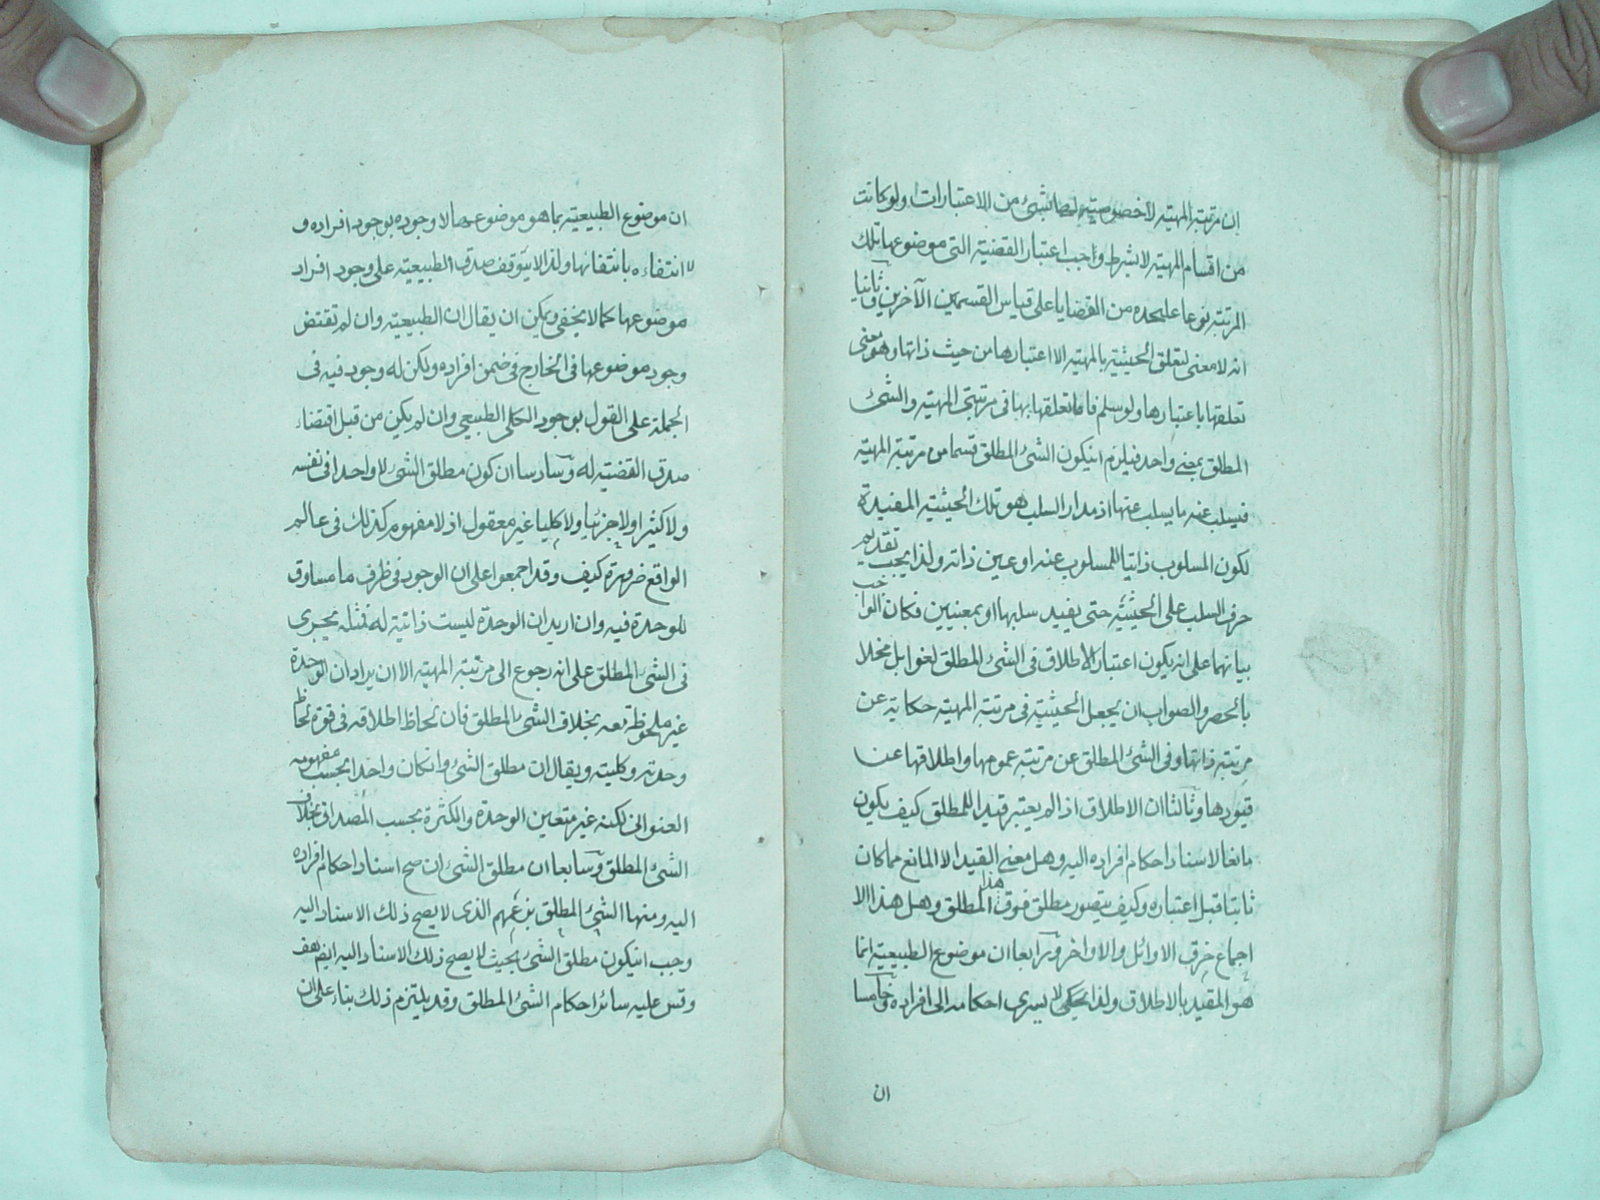 ان مرتبة المهية لا خصوصية لها بشئ من الاعتبارات ولو كانت
من اقسام المهية لا بشرط واجب اعتبار القضية التى موضوعها تلك
المرتبة نوعا علىحده من القضايا على قياس القسمين الآخرين وثانيا
انه لا معنى لتعلق الحيثية بالمهية الا اعتبارها من حيث ذاتها وهو معنى
تعلقها باعتبارها ولو سلم فاما تعلقها بها فى مرتبتى المهية والشئ
المطلق بمعنى واحد فيلزم انيكون الشئ المطلق قسما من مرتبة المهية
فيسلب عنه ما يسلب عنها اذ مدار السلب هو تلك الحيثية المفيدة
لكون المسلوب ذاتيا للمسلوب عنه او عين ذاته ولذا يجب تقديم
حرف السلب على الحيثية حتى يفيد سلبها او بمعنيين فكان الواجب
بيانهما على انه يكون اعتبار الاطلاق فى الشئ المطلق لغوا بل مخلا
بالحصر والصواب ان يجعل الحيثية فى مرتبة المهية حكاية عن
مرتبة ذاتها وفى الشئ المطلق عن مرتبة عمومها واطلاقها عن
قيودها وثالثا ان الاطلاق اذ الم يعتبر قيدا للمطلق كيف يكون
مانعا لاسناد احكام افراده اليه وهل معنى القيد الا المانع مما كان
ثابتا قبل اعتباره وكيف يتصور مطلق فوق هذا المطلق وهل هذا الا
اجماع خرق الاوائل والاواخر ورابعا ان موضوع الطبيعية انما
هو المقيد بالاطلاق ولذا يحكى لا يسرى احكامه الى افراده وخامسا
ان
ان موضوع الطبيعية بما هو موضوع لها لا وجوده بوجود افراده و
لا انتفاءه بانتفائها ولذا لا يتوقف صدق الطبيعية على وجود افراد
موضوعها كما لا يخفى ويمكن ان يقال ان الطبيعية وان لم تقتض
وجود موضوعها فى الخارج فى ضمن افراده ولكن له وجود فيه فى
الجملة على القول بوجود الكلى الطبيعى وان لم يكن من قبل اقتضاء
صدق القضية له وسادسا ان كون مطلق الشئ لا واحدا فى نفسه
ولا كثيرا ولا جزئيا ولا كليا غير معقول اذ لا مفهوم كذلك فى عالم
الواقع ضرورة كيف وقد اجمعوا على ان الوجود فى ظرف ما مساوق
للوحدة فيه وان اريد ان الوحدة ليست ذاتية له فمثله يجرى
فى الشئ المطلق على انه رجوع الى مرتبة المهية الا ان يراد ان الوحدة
غير ملحوظة معه بخلاف الشئ المطلق فان لحاظ اطلاقه فى قوة لحاظ
وحدته وكليته ويقال ان مطلق الشئ وانكان واحدا بحسب مفهومه
العنوانى لكنه غير متعين الوحدة والكثرة بحسب المصداق بخلاف
الشئ المطلق وسابعا ان مطلق الشئ ان صح اسناد احكام افراده
اليه ومنها الشئ المطلق بزعمهم الذى لا يصح ذلك الاسناد اليه
وجب انيكون مطلق الشئ بحيث لا يصح ذلك الاسناد اليه ايض هف
وقس عليه سائر احكام الشئ المطلق وقد يلتزم ذلك بناء على ان